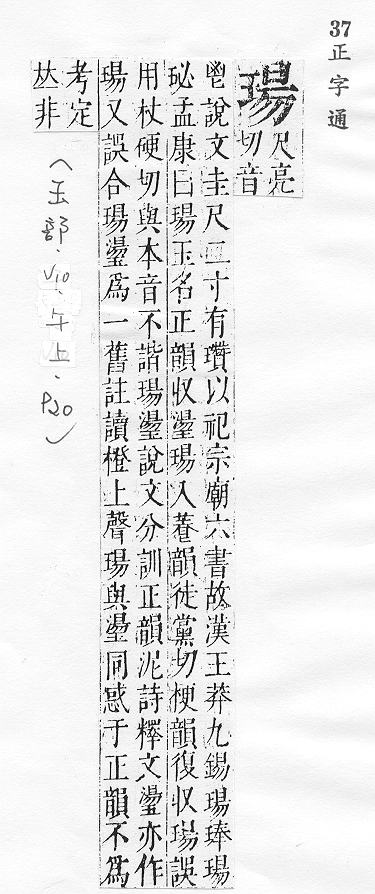 37正字通
瑒
尺亮
切音
鬯說文圭尺二寸有瓚以祀宗廟六書故漢王莽九錫瑒琫瑒
珌孟康曰瑒玉名正韻收璗瑒入養韻徒黨切梗韻復收瑒誤
用杖硬切與本音不諧瑒璗說文分訓正韻泥詩釋文璗亦作
瑒又誤合瑒璗爲一舊註讀橙上聲瑒與璗同惑于正韻不爲
考定
𠀤非
(玉部.V10.午上.P20)